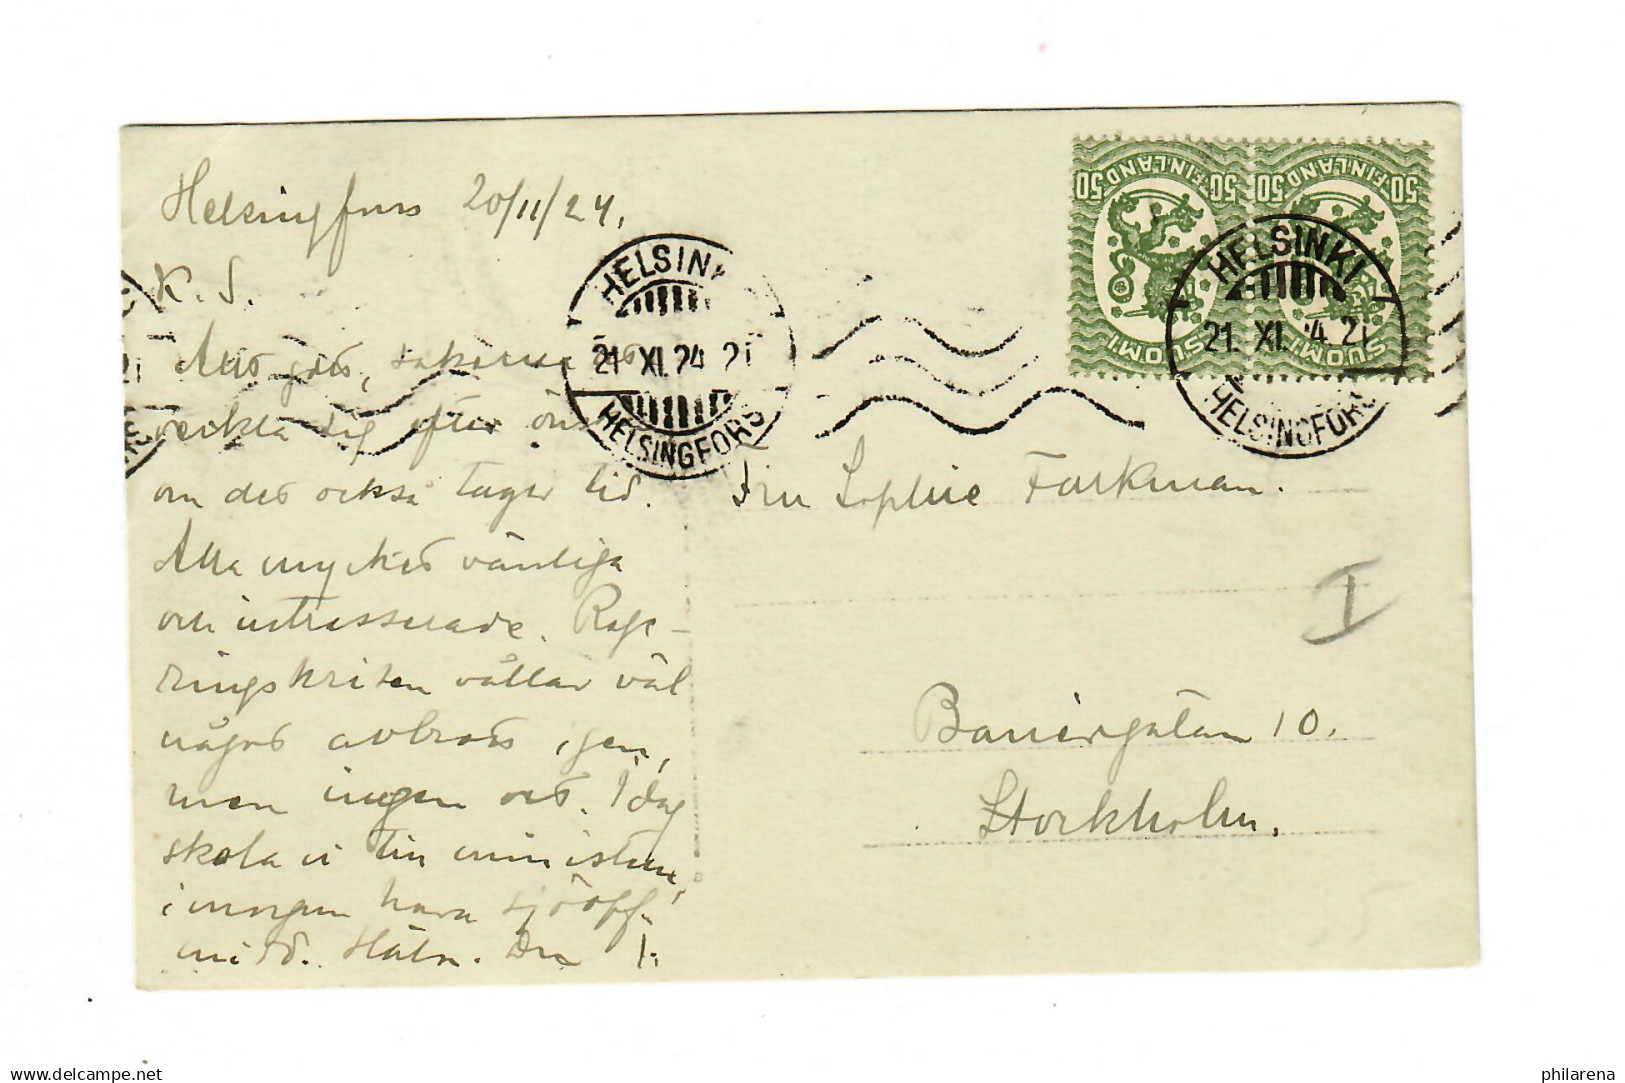 Helsingfors 20/11/24.
K. S.
Allt går, sakerna
veckla sig efter
om det också tager tid.
Alla mycket vänliga
och intresserade. Rege-
ringskrisen vållar väl
något avbrott igen,
men ingen ort. Idag
skola vi till ministern,
i morgon hava
Hälsn. Din
HELSINKI
21. XI. 24. 21
HELSINGFORS
50 FINLAND 50
SUOMI
50 FINLAND 50
SUOMI
HELSINKI
21. XI. 24. 21
HELSINGFORS
Fru Sophie Farkman.
I
Baniérgatan 10.
Stockholm.
www.delcampe.net
philarena